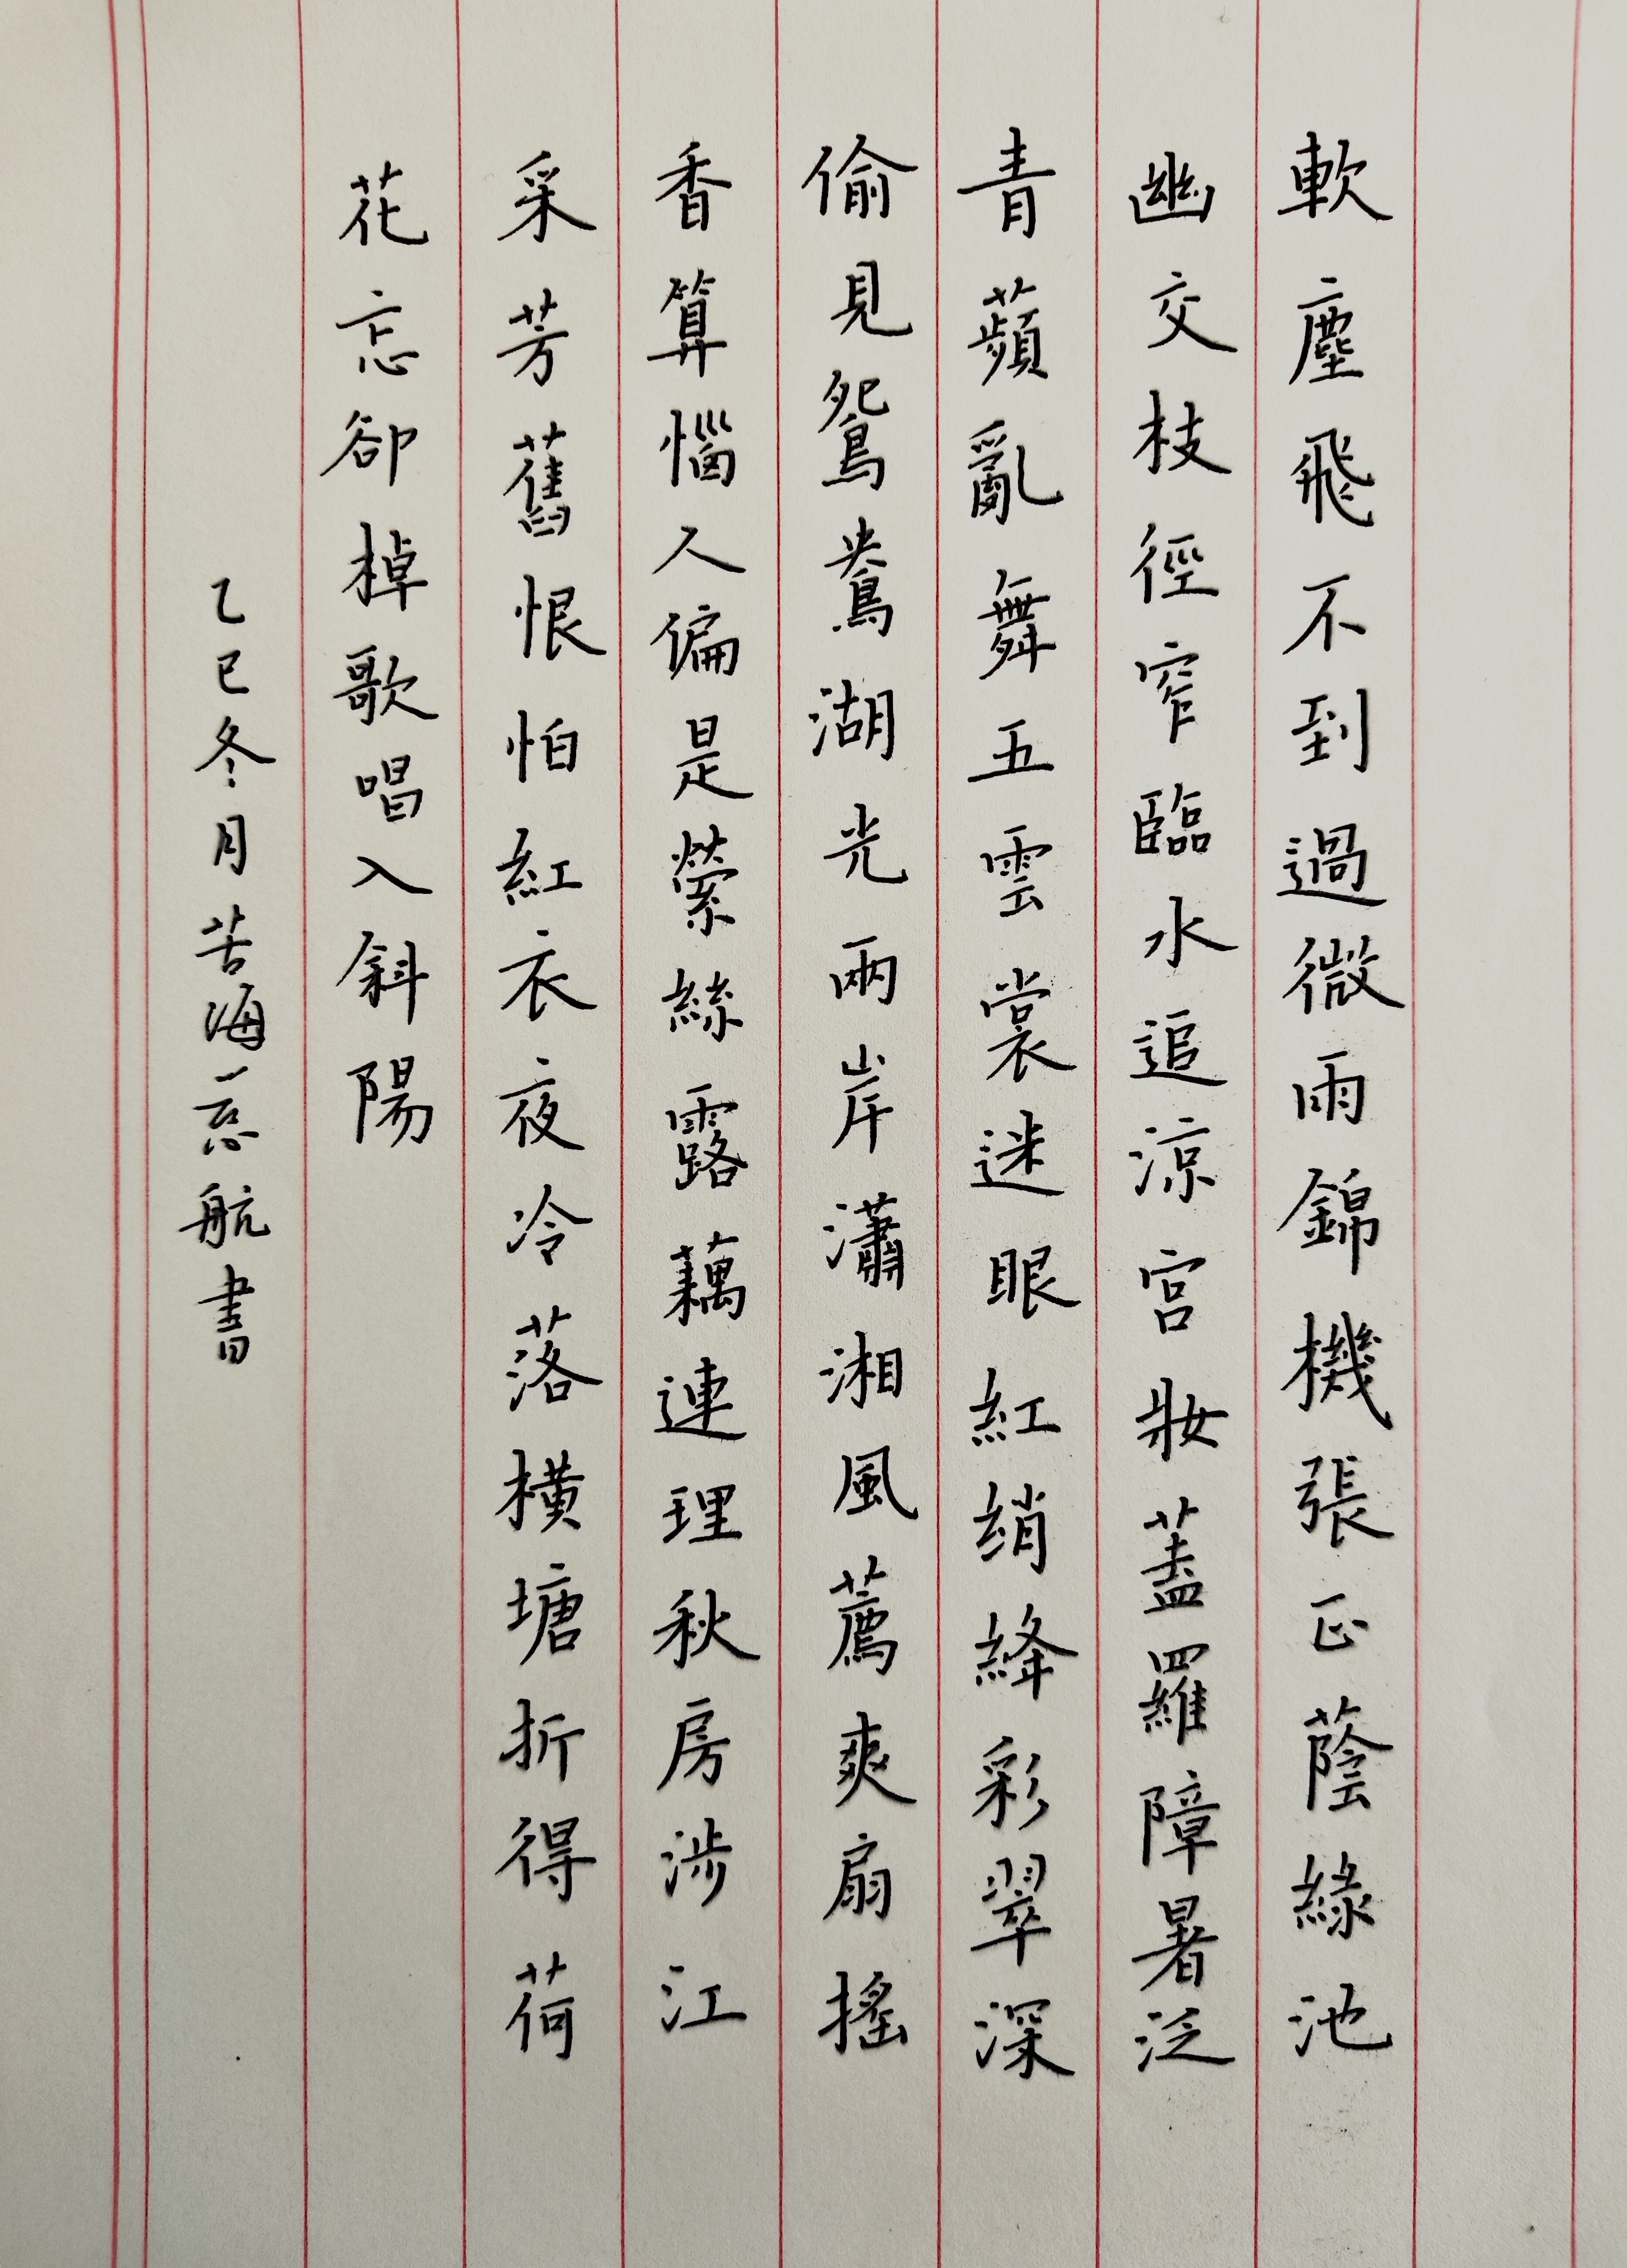 軟塵飛不到過微雨錦機張正蔭綠池
幽交枝徑窄臨水追涼宮妝蓋羅障暑泛
青蘋亂舞五雲裳迷眼紅綃絳彩翠深
偷見鴛鴦湖光兩岸瀟湘風薦爽扇搖
香算惱人偏是縈絲露藕連理秋房涉江
采芳舊恨怕紅衣夜冷落橫塘折得荷
花忘卻棹歌唱入斜陽
乙巳冬月苦海一忘航書